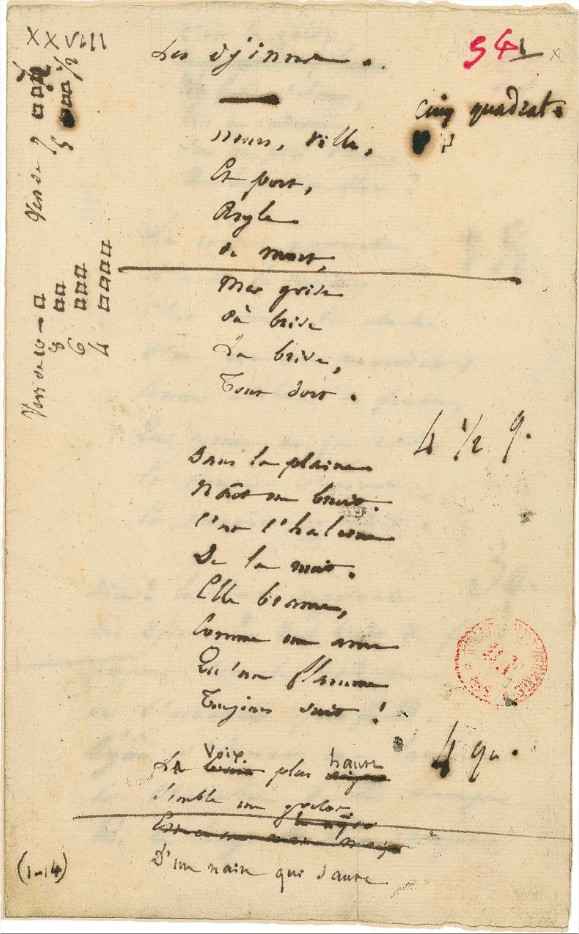 XXVIII
Les djinns.
54
cinq quadrat.
murs, ville,
Et port,
Asyle
de mort,
Mer grise
Où brise
La brise,
Tout dort.
4 1/2 q.
Dans la plaine
Naît un bruit.
C'est l'haleine
De la nuit.
Elle brame,
Comme une ame
Qu'une flamme
Toujours suit !
4 qu.
La voix plus haute
Semble un grelot
D'un nain qui saute
(1-14)
Vers de 10 – □
8 □□
6 □□□
4 □□□□
Vers de 7 □□
5 □□ 1/2